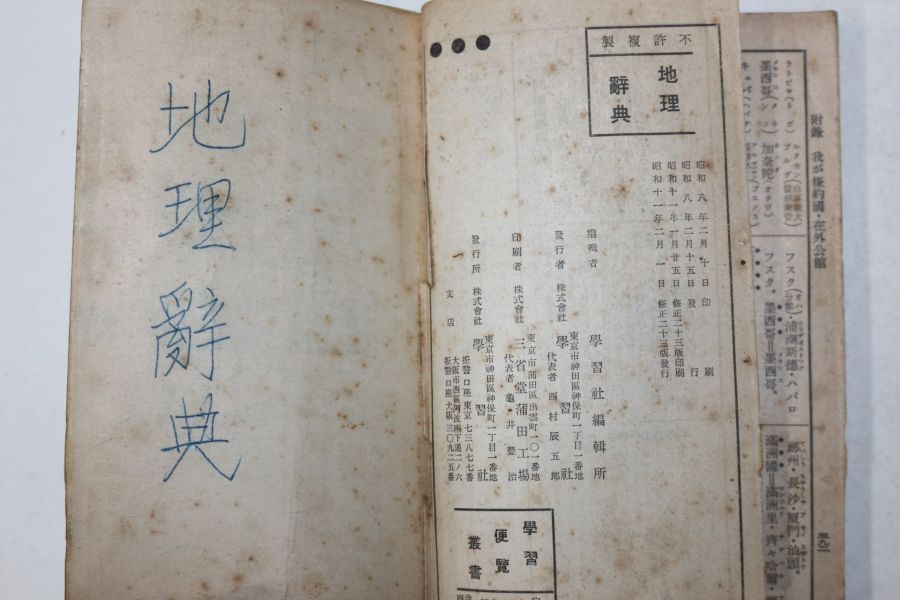 地理辭典
不許複製
地理
辭典
昭和八年二月十日印刷
昭和八年二月十五日發行
昭和十一年一月廿五日修正二十三版印刷
昭和十一年二月一日修正二十三版發行
編輯者 學習社編輯所
東京市神田區神保町一丁目一番地
發行者 株式會社 學習社
代表者 西村辰五郎
東京市蒲田區出雲町一〇一番地
印刷者 株式會社 三省堂蒲田工場
代表者 龜井豐治
東京市神田區神保町一丁目一番地
發行所 株式會社 學習社
振替口座東京七三八七七番
支店
振替口座大阪三〇九二五番
學習
便覽
叢書
附錄 我が條約國・在外公館
フスク・浦潮斯德・ハバロ
鄭州・長沙・廈門・汕頭
墨西哥
加奈陀(オタワ)
フスク。墨西哥＝墨西哥。
滿洲國＝滿洲里・齊々哈爾・